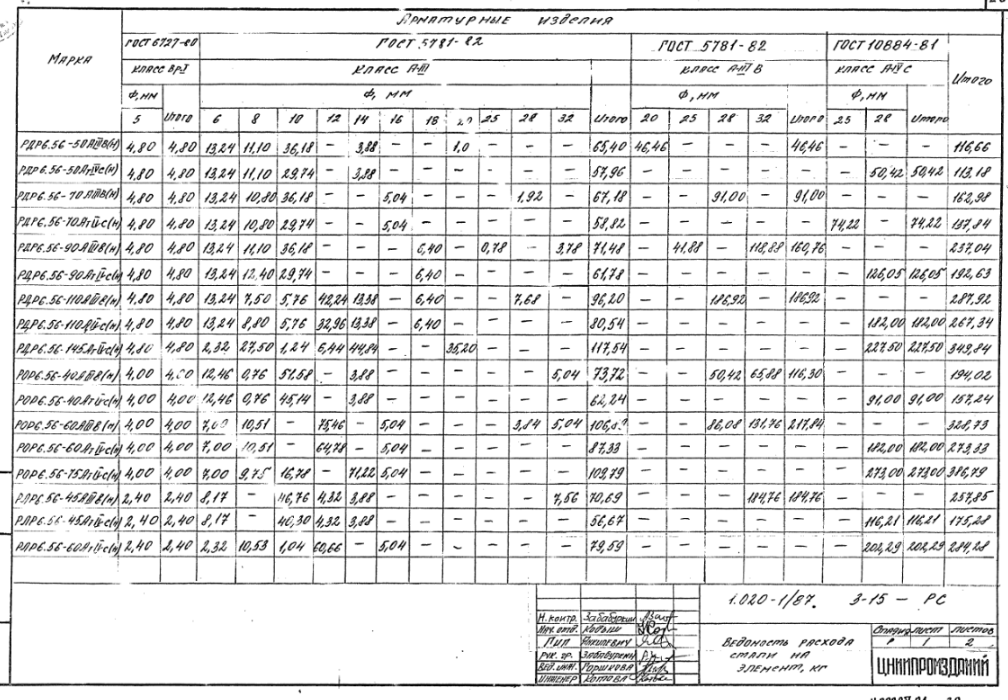 Арматурные изделия
Марка ГОСТ 6727-80 ГОСТ 5781-82 ГОСТ 5781-82 ГОСТ 10884-81 Итого
класс ВрI класс А-III класс А-IIIВ класс
Ф, мм Ф, мм Ф, мм Ф, мм
5 Итого 6 8 10 12 14 16 18 25 28 32 Итого 20 25 28 32 Итого 25 28 Итого
РДР6.56-50АIIIВ(н) 4,80 4,80 13,24 11,10 36,18 – 3,88 – – 1,0 – – – 65,40 46,46 – – – 46,46 – – – 116,66
РДР6.56-50АтIVс(н) 4,80 4,80 13,24 11,10 29,74 – 3,88 – – – – – – 57,96 – – – – – – 50,42 50,42 113,18
РДР6.56-70АIIIВ(н) 4,80 4,80 13,24 10,80 36,18 – – 5,04 – – – 1,92 – 67,18 – – 91,00 – 91,00 – – – 162,98
РДР6.56-70АтIVс(н) 4,80 4,80 13,24 10,80 29,74 – – 5,04 – – – – – 58,82 – – – – – 74,22 – 74,22 137,84
РДР6.56-90АIIIВ(н) 4,80 4,80 13,24 11,10 36,18 – – – 6,40 – 0,78 – 3,78 71,48 – 41,88 – 118,88 160,76 – – – 237,04
РДР6.56-90АтIVс(н) 4,80 4,80 13,24 12,40 29,74 – – – 6,40 – – – – 61,78 – – – – – – 126,05 126,05 192,63
РДР6.56-110АIIIВ(н) 4,80 4,80 13,24 7,50 5,76 42,24 13,38 – 6,40 – – 7,68 – 96,20 – – 186,92 – 186,92 – – – 287,92
РДР6.56-110АтIVс(н) 4,80 4,80 13,24 8,80 5,76 32,96 13,38 – 6,40 – – – – 80,54 – – – – – – 182,00 182,00 267,34
РДР6.56-145АтIVс(н) 4,80 4,80 2,32 27,50 1,24 6,44 44,84 – – 35,20 – – – 117,54 – – – – – – 227,50 227,50 349,84
РОР6.56-40АIIIВ(н) 4,00 12,46 0,76 51,58 – 3,88 – – – – – 5,04 73,72 – – 50,42 65,88 116,30 – – – 194,02
РОР6.56-40АтIVс(н) 4,00 4,00 12,46 0,76 45,14 – 3,88 – – – – – – 62,24 – – – – – – 91,00 91,00 157,24
РОР6.56-60АIIIВ(н) 4,00 4,00 10,51 – 75,46 – 5,04 – – – 3,84 5,04 – – 86,08 131,76 217,84 – – – 328,73
РОР6.56-60АтIVс(н) 4,00 4,00 7,00 10,51 – 64,78 – 5,04 – – – – – 87,33 – – – – – – 182,00 182,00 273,33
РОР6.56-75АтIVс(н) 4,00 4,00 7,00 9,75 16,78 – 71,22 5,04 – – – – – 109,79 – – – – – – 273,00 273,00 386,79
РЛР6.56-45АIIIВ(н) 2,40 2,40 8,17 – 46,76 4,32 3,88 – – – – – 7,56 70,69 – – – 184,76 184,76 – – – 257,85
РЛР6.56-45АтIVс(н) 2,40 2,40 8,17 – 40,30 4,32 3,88 – – – – – – 56,67 – – – – – – 116,21 116,21 175,28
РЛР6.56-60АтIVс(н) 2,40 2,40 2,32 10,53 1,04 60,66 – 5,04 – – – – – 79,59 – – – – – – 202,29 202,29 284,28
1.020-1/87. 3-15 – РС
Н.контр.
Нач. отд.
ГИП
Рук. гр.
Вед. инж. Горшкова
Инженер Котова
Ведомость расхода
стали на
элемент, кг
Стадия Лист Листов
Р 1 2
ЦНИИПРОМЗДАНИЙ